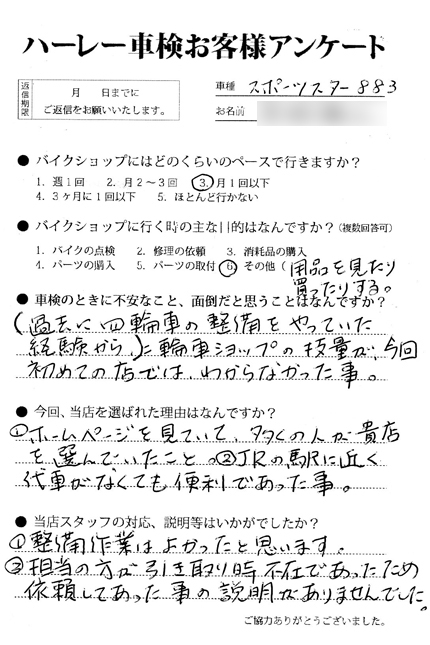 ハーレー車検お客様アンケート
返信期限 月 日までに
ご返信をお願いいたします。
車種 スポーツスター883
お名前
● バイクショップにはどのくらいのペースで行きますか？
1. 週1回 2. 月2～3回 3. 月1回以下
4. 3ヶ月に1回以下 5. ほとんど行かない
● バイクショップに行く時の主な目的はなんですか？（複数回答可）
1. バイクの点検 2. 修理の依頼 3. 消耗品の購入
4. パーツの購入 5. パーツの取付 6. その他（用品を見たり
買ったりする。
● 車検のときに不安なこと、面倒だと思うことはなんですか？
(過去に四輪車の整備をやっていた
経験から)二輪車ショップの技量が、今回
初めての店では、わからなかった事。
● 今回、当店を選ばれた理由はなんですか？
①ホームページを見ていて、多くの人が貴店
を選んでいたこと。②JRの駅に近く
代車がなくても便利であった事。
● 当店スタッフの対応、説明等はいかがでしたか？
①整備作業はよかったと思います。
②担当の方が引き取り時不在であったため
依頼してあった事の説明がありませんでした。
ご協力ありがとうございました。